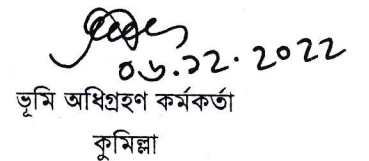 ০৬.১২.২০২২
ভূমি অধিগ্রহণ কর্মকর্তা
কুমিল্লা